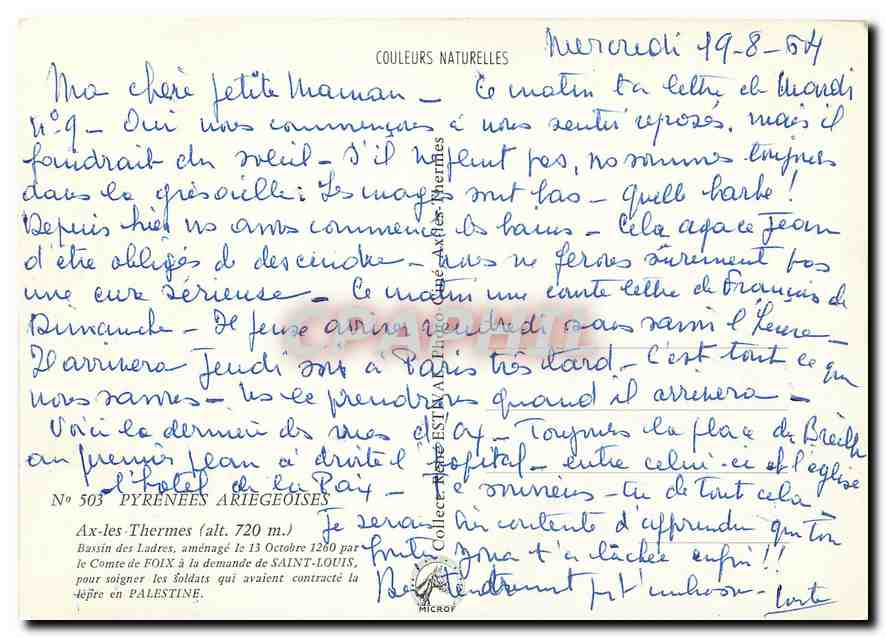 COULEURS NATURELLES
Mercredi 19-8-64
Ma chère petite Maman - Ce matin ta lettre de Mardi
N°9 - Oui nous commençons à nous sentir reposés, mais il
faudrait du soleil - S'il ne pleut pas, ns sommes toujours
dans la grisaille : Les nuages sont bas - quelle barbe !
Depuis hier ns avons commencé les bains - Cela agace Jean
d'être obligés de descendre - nous ne ferons sûrement pas
une cure sérieuse - Ce matin une courte lettre de François de
Dimanche - Il pense arriver vendredi sans savoir l'heure -
Il arrivera Jeudi soir à Paris très tard - C'est tout ce que
nous savons - Ns le prendrons quand il arrivera -
Voici la dernière des vues d'Ax - Toujours la place du Breilh
au premier plan à droite l'hôpital - entre celui-ci et l'église
l'hôtel de la Paix - Te souviens-tu de tout cela
Je serais bien contente d'apprendre que ton
zona t'a lâchée enfin !!
Bien tendrement je t'embrasse -
N° 503 PYRÉNÉES ARIÉGEOISES
Ax-les-Thermes (alt. 720 m.)
Bassin des Ladres, aménagé le 13 Octobre 1260 par
le Comte de FOIX à la demande de SAINT-LOUIS,
pour soigner les soldats qui avaient contracté la
lèpre en PALESTINE.
Collect. René ESTIVAL Photo-Ciné Ax-les-Thermes
MICROF
CPAPHIL